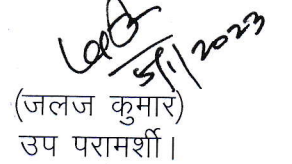 5/1/2023
(जलज कुमार)
उप परामर्शी।